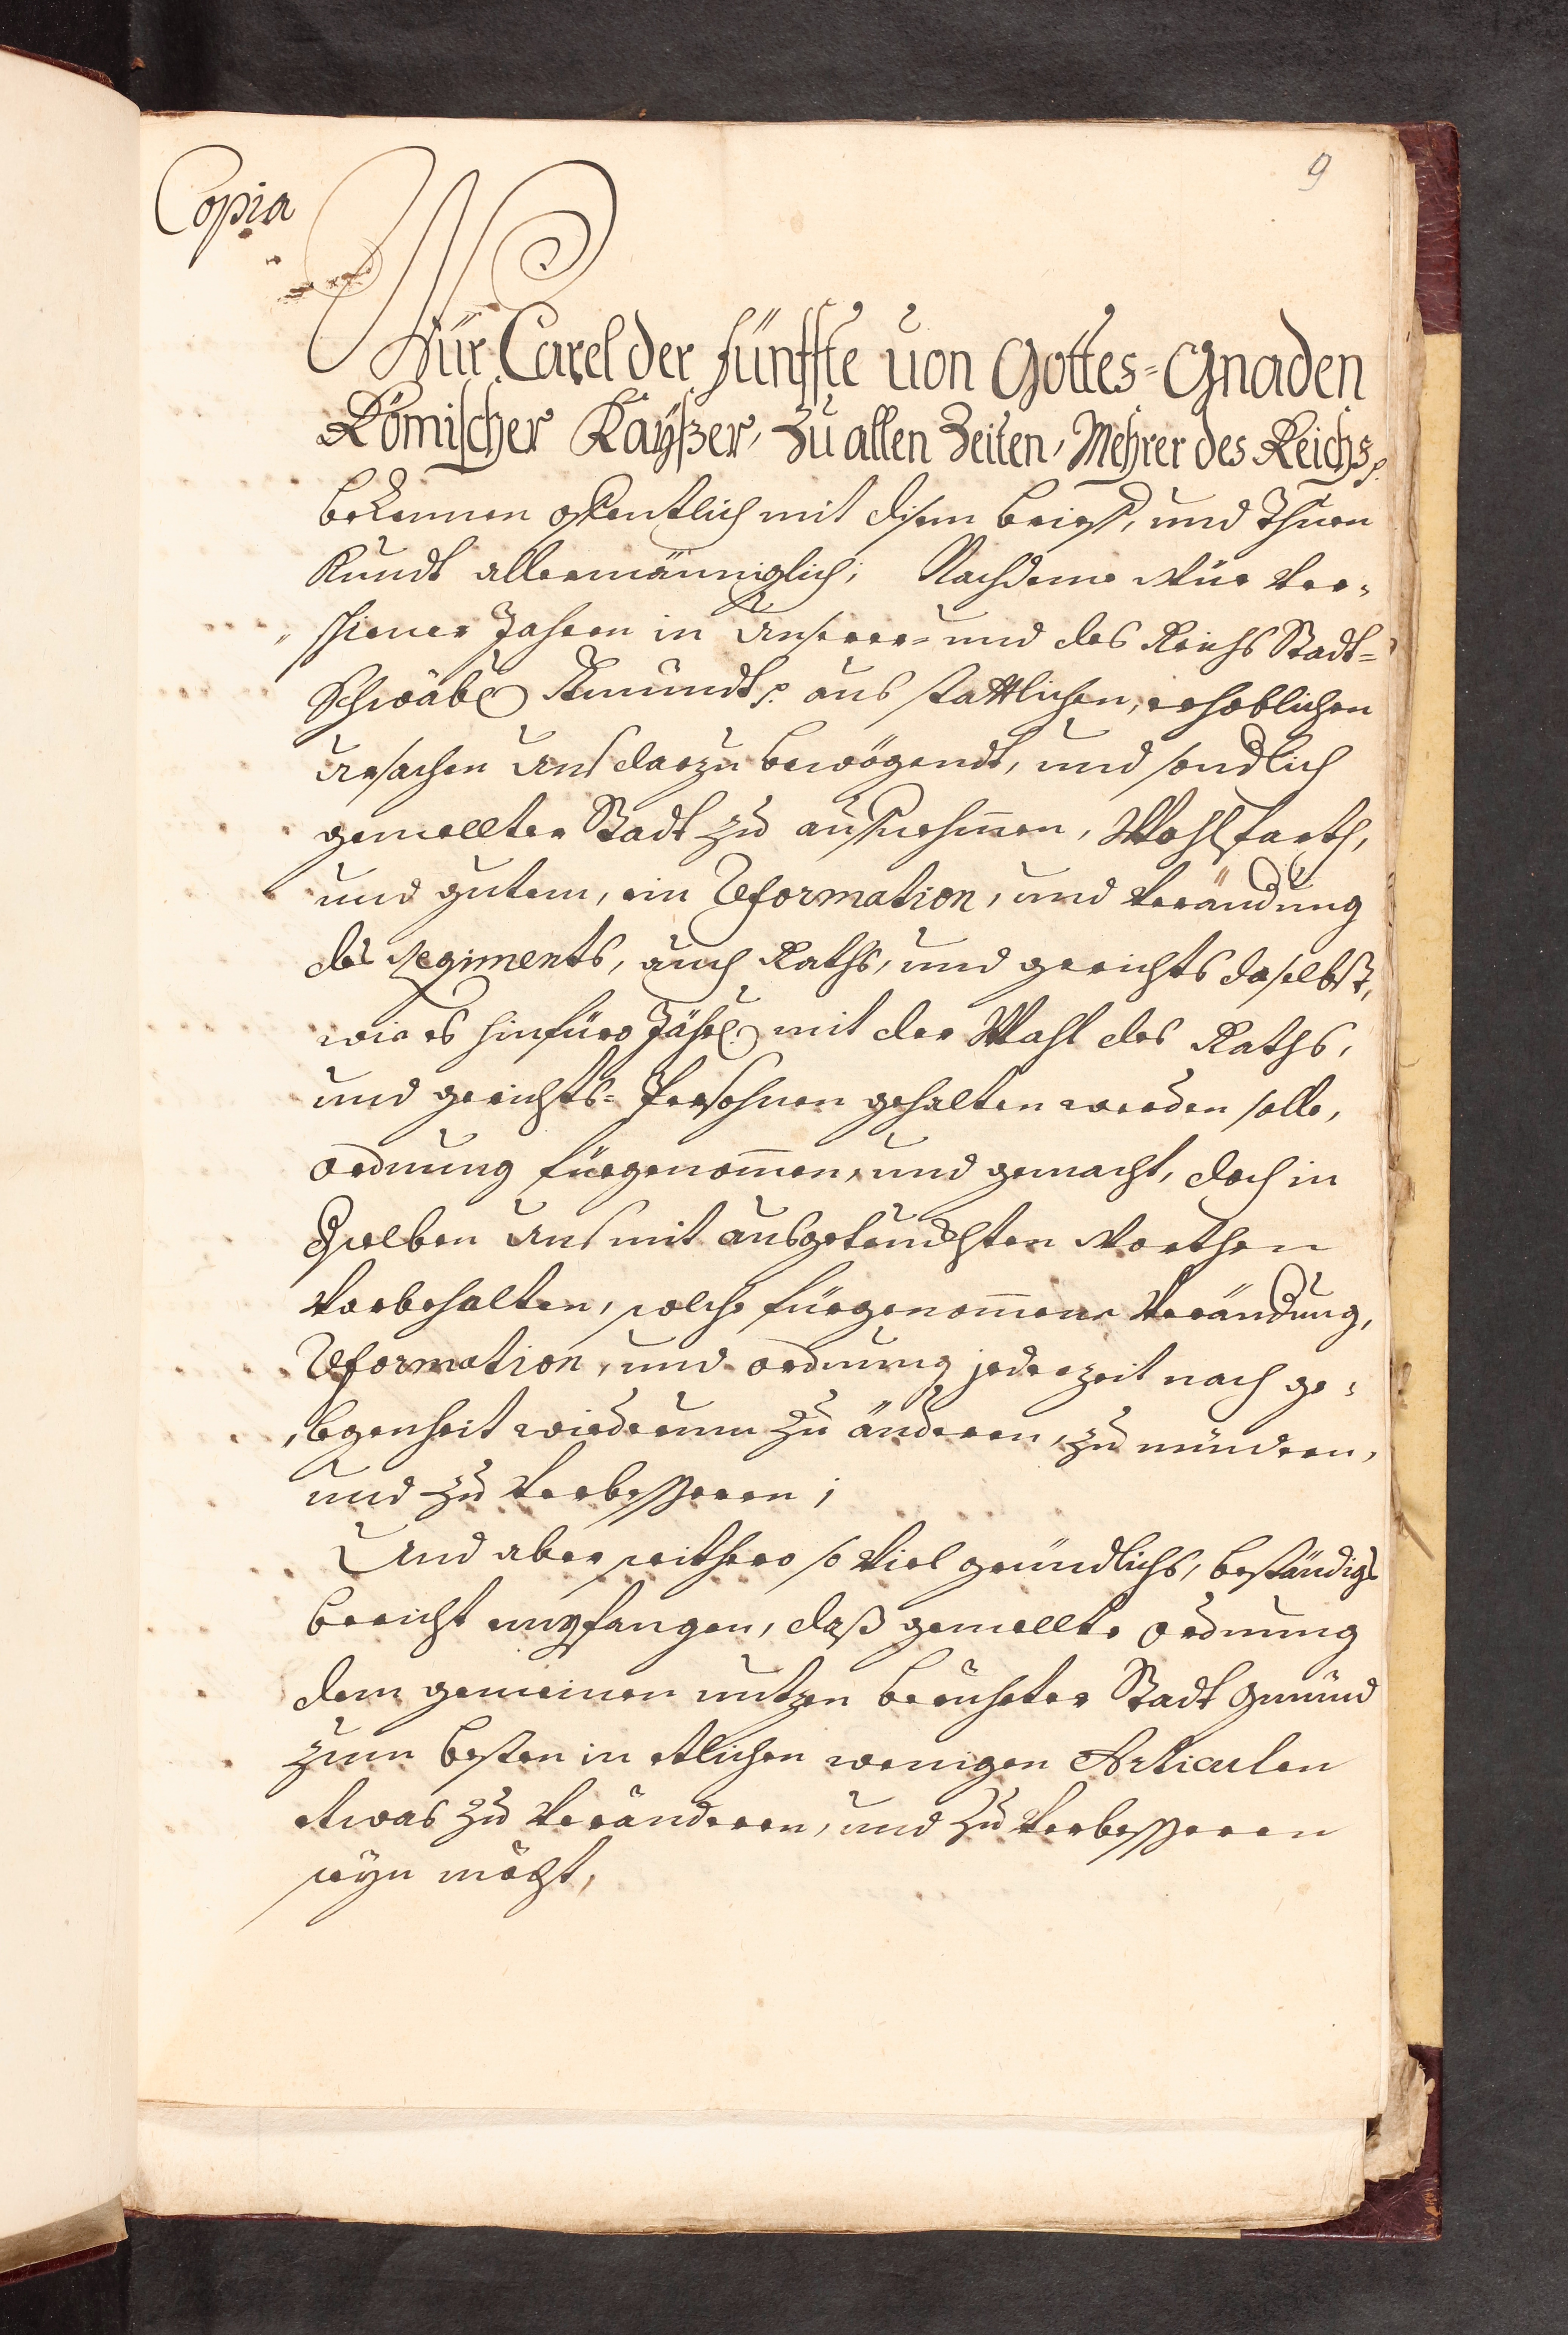 9
Copia
Wür Carel der fünffte von Gottes=Gnaden
Römischer Kayßer, zu allen Zeiten, Mehrer des Reichs p.
bekennen offentlich mit disem brieff, und Thuen
Kundt allermänniglich; Nachdeme Wür ver¬
schiener Jahren in Unserer= und des Reichs Stadt=
Schwäb. Gmündt p. aus stattlichen, erhöblichen
Ursachen Uns darzu bewögendt, und sondlich
gemellter Stadt zu auffnehmen, Wohlfarth,
und gutem, ein Reformation, und Verändung
des Regiments, auch Raths, und gerichts daselbst,
wie es hinfüro Jährl. mit der Wahl des Raths,
und gerichts= Persohnen gehalten werden solle,
ordnung fürgenommen, und gemacht, doch in
Dselben Uns mit ausgetruckhten Worthen
Vorbehalten, solche fürgenommene Verändung,
Reformation, und ordnung jederzeit nach ge¬
legenheit wiederumm zu änderen, zu mündren,
und zu Verbesseren;
Und aber seithero so viel gründlichs, beständigs
bericht empfangen, daß gemellte ordnung
dem gemeinen nutzen berüehrter Stadt Gmünd
zum besten in etlichen wenigen Articulen
etwas zu Veränderen, und zu Verbesseren
seyn möcht,